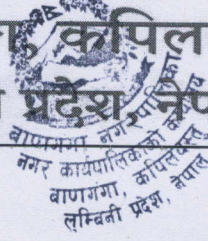 , कपिल
प्रदेश, नेप
बाणगंगा नगरपालिका
नगर कार्यपालिकाको कार्यालय
बाणगंगा, कपिलवस्तु
लुम्बिनी प्रदेश, नेपाल